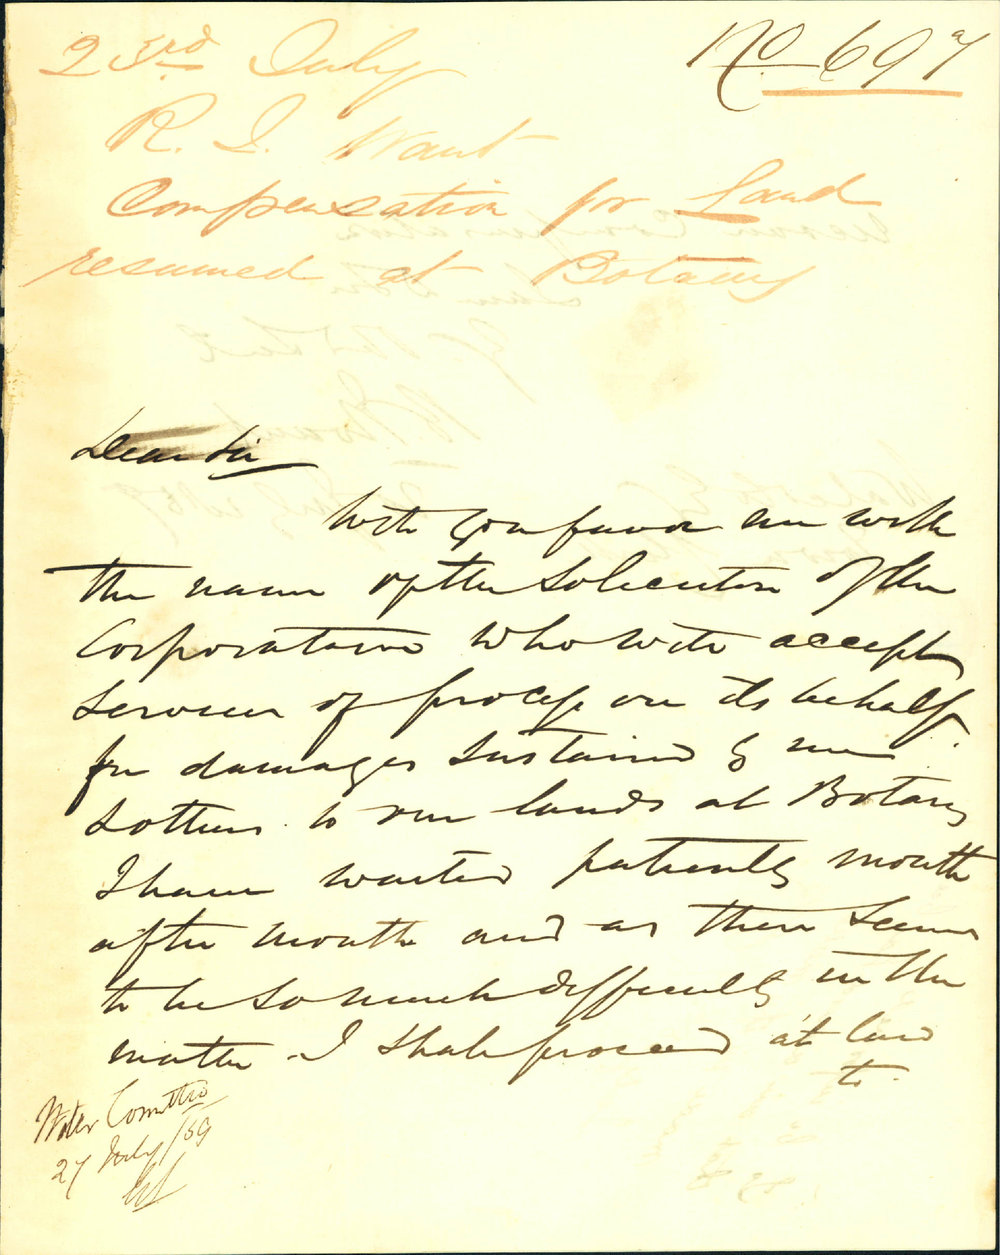 23rd July
No 697
R. J. Want
Compensation for Land
resumed at Botany
Dear Sir
Will you favor me with
the name of the Solicitor of the
Corporation who will accept
service of process on its behalf
for damages sustained by me
& others to our lands at Botany
I have waited patiently month
after month and as there seems
to be so much difficulty in the
matter I shall proceed at law
to
Water Comttee
27 July /59